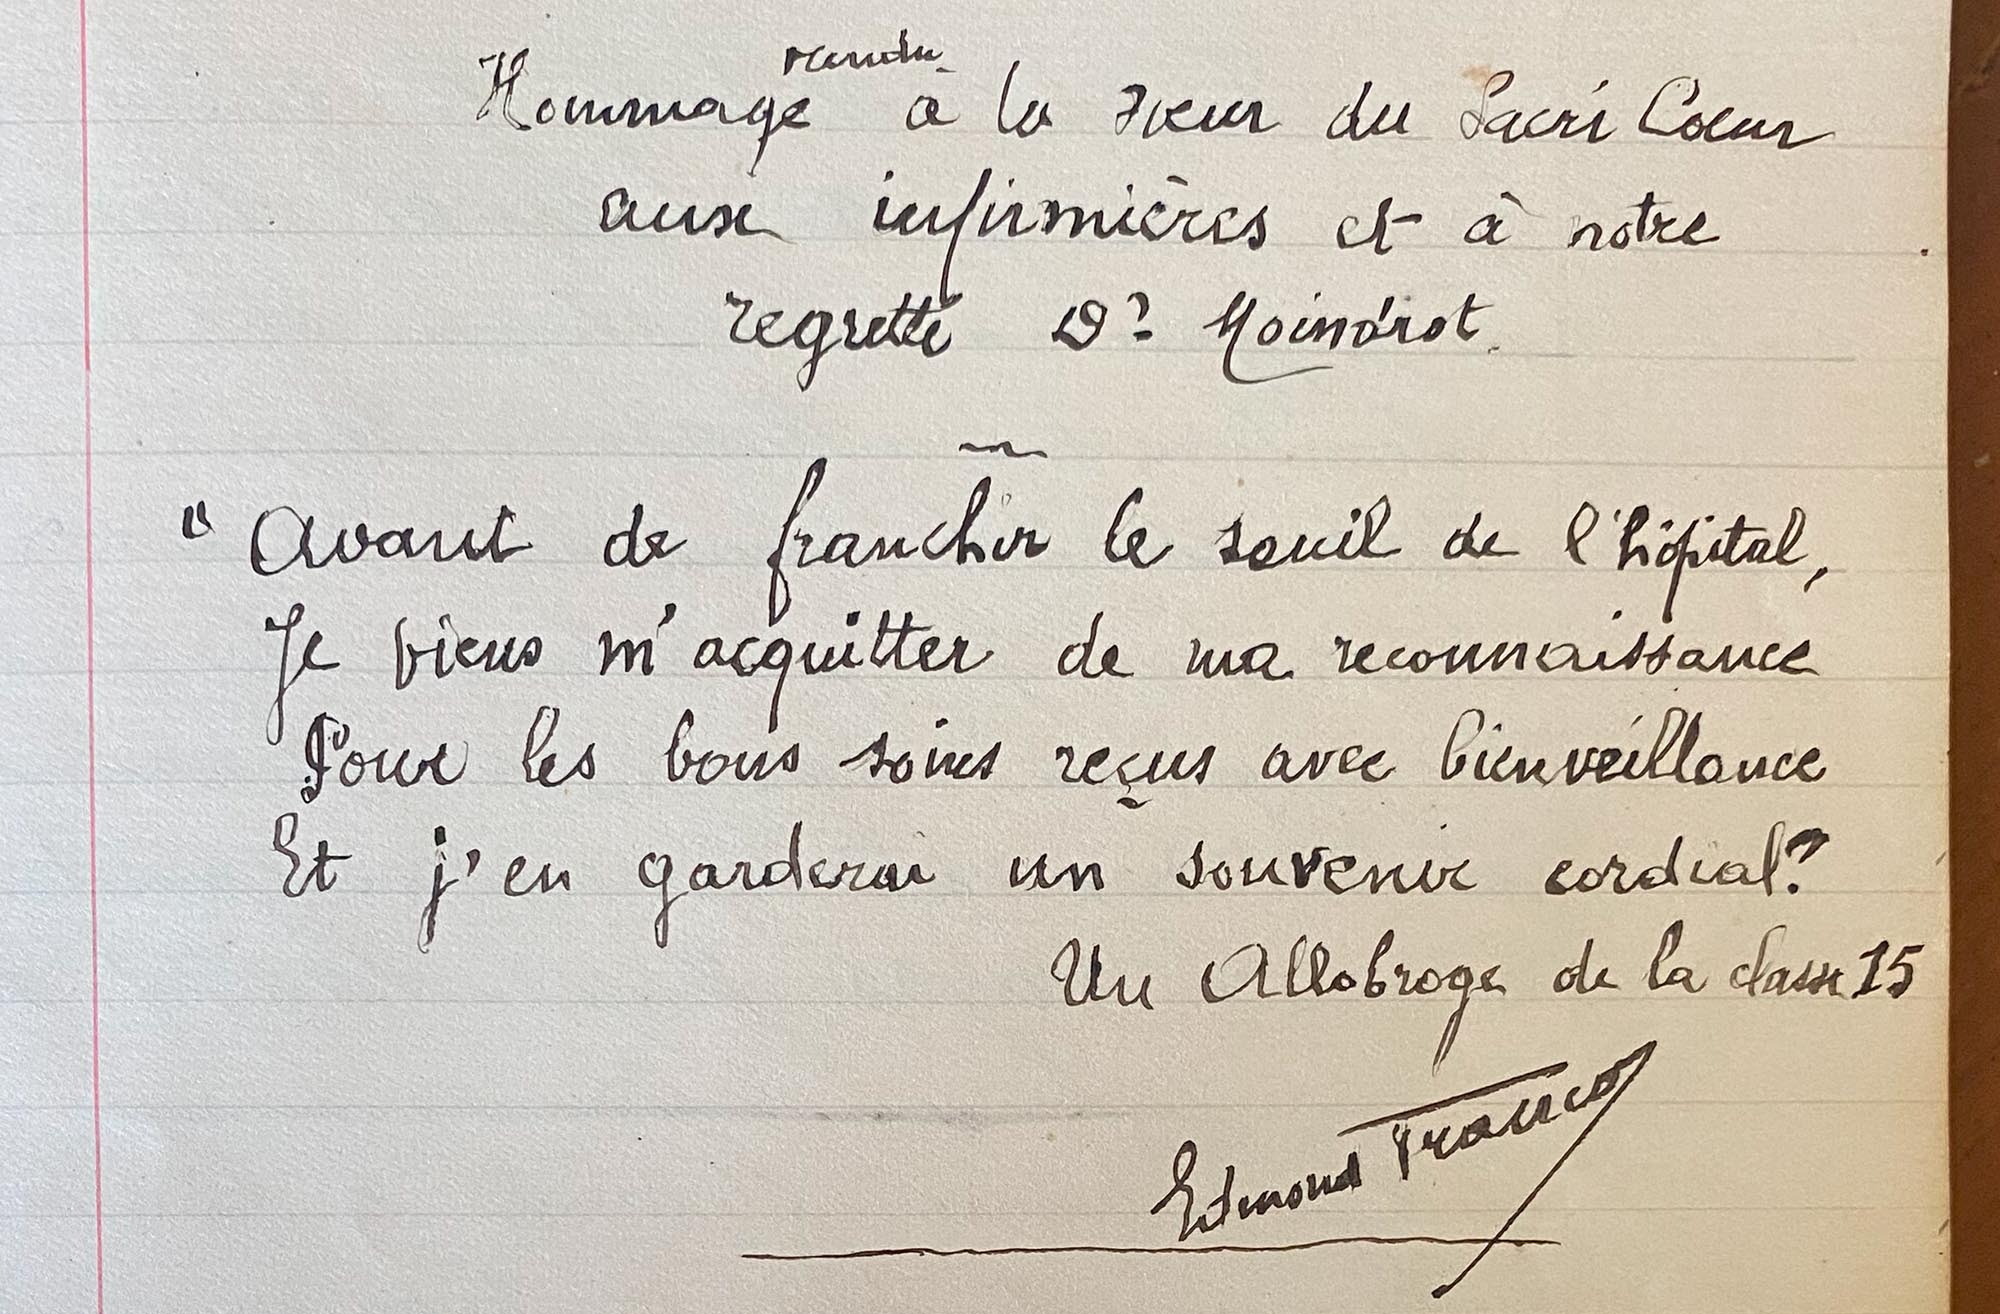 Hommage rendu à la sœur du Sacré Cœur
aux infirmières et à notre
regretté Dr Moindrot.
" Avant de franchir le seuil de l'hôpital,
Je viens m'acquitter de ma reconnaissance
Pour les bons soins reçus avec bienveillance
Et j'en garderai un souvenir cordial"
Un Allobroge de la classe 15
Edmond Franco